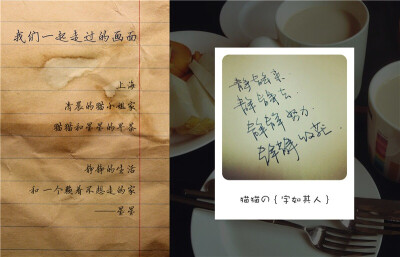 我们一起走过的画面
上海
清晨的猫小姐家
猫猫和墨墨的早茶
静静的生活
和一个赖着不想走的家
——墨墨
静静来
静静去
静静努力
静静收获
猫猫の{字如其人}